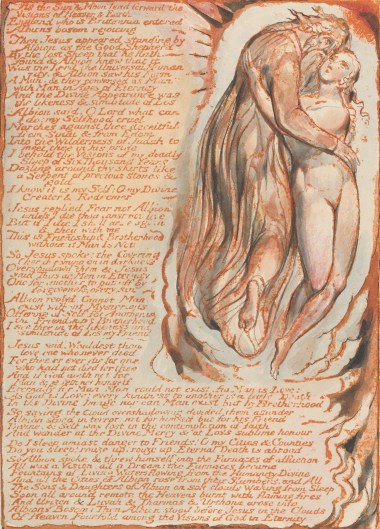 As the Sun & Moon lead forward the
Visions of Heaven & Earth
England who is Brittannia enterd
Albions bosom rejoicing
Then Jesus appeared standing by
Albion as the Good Shepherd
By the lost Sheep that he hath
found & Albion knew that it
Was the Lord the Universal Human
ity, & Albion saw his Form
A Man. & they conversed as Man
with Man, in Ages of Eternity
And the Divine Appearance was
the likeness & similitude of Los
Albion said. O Lord what can
I do! my Selfhood cruel
Marches against thee deceitful
from Sinai & from Edom
Into the Wilderness of Judah to
meet thee in his pride
I behold the Visions of my deadly
Sleep of Six Thousand Years
Dazling around thy skirts like
a Serpent of precious stones &
gold
I know it is my Self: O my Divine
Creator & Redeemer
Jesus replied Fear not Albion
unless I die thou canst not live
But if I die I shall arise again
& thou with me
This is Friendship & Brotherhood
without it Man Is Not
So Jesus spoke: the Covering
Cherub coming on in darkness
Overshadowd them & Jesus
said Thus do Men in Eternity
One for another to put off by
forgiveness, every sin
Albion replyd. Cannot Man
exist without Mysterious
Offering of Self for Another
is this Friendship & Brotherhood
I see thee in the likeness and
similitude of Los my Friend
Jesus said. Wouldest thou
love one who never died
For thee or ever die for one
who had not died for thee
And if God dieth not for
Man & giveth not himself
Eternally for Man Man could not exist. for Man is Love:
As God is Love: every kindness to another is a little Death
In the Divine Image nor can Man exist but by Brotherhood
So saying. the Cloud overshadowing divided them asunder
Albion stood in terror: not for himself but for his Friend
Divine, & Self was lost in the contemplation of faith
And wonder at the Divine Mercy & at Los's sublime honour
Do I sleep amidst danger to Friends! O my Cities & Counties
Do you sleep! rouze up, rouze up. Eternal Death is abroad
So Albion spoke & threw himself into the Furnaces of affliction
All was a Vision, all a Dream: the Furnaces became
Fountains of Living Waters flowing from the Humanity Divine
And all the Cities of Albion rose from their Slumbers, and All
The Sons & Daughters of Albion on soft clouds Waking from Sleep
Soon all around remote the Heavens burnt with flaming fires
And Urthona & Luvah & Tharmas & Urizen arose into
Albions Bosom: Then Albion stood before Jesus in the Clouds
Of Heaven Fourfold among the Visions of God in Eternity